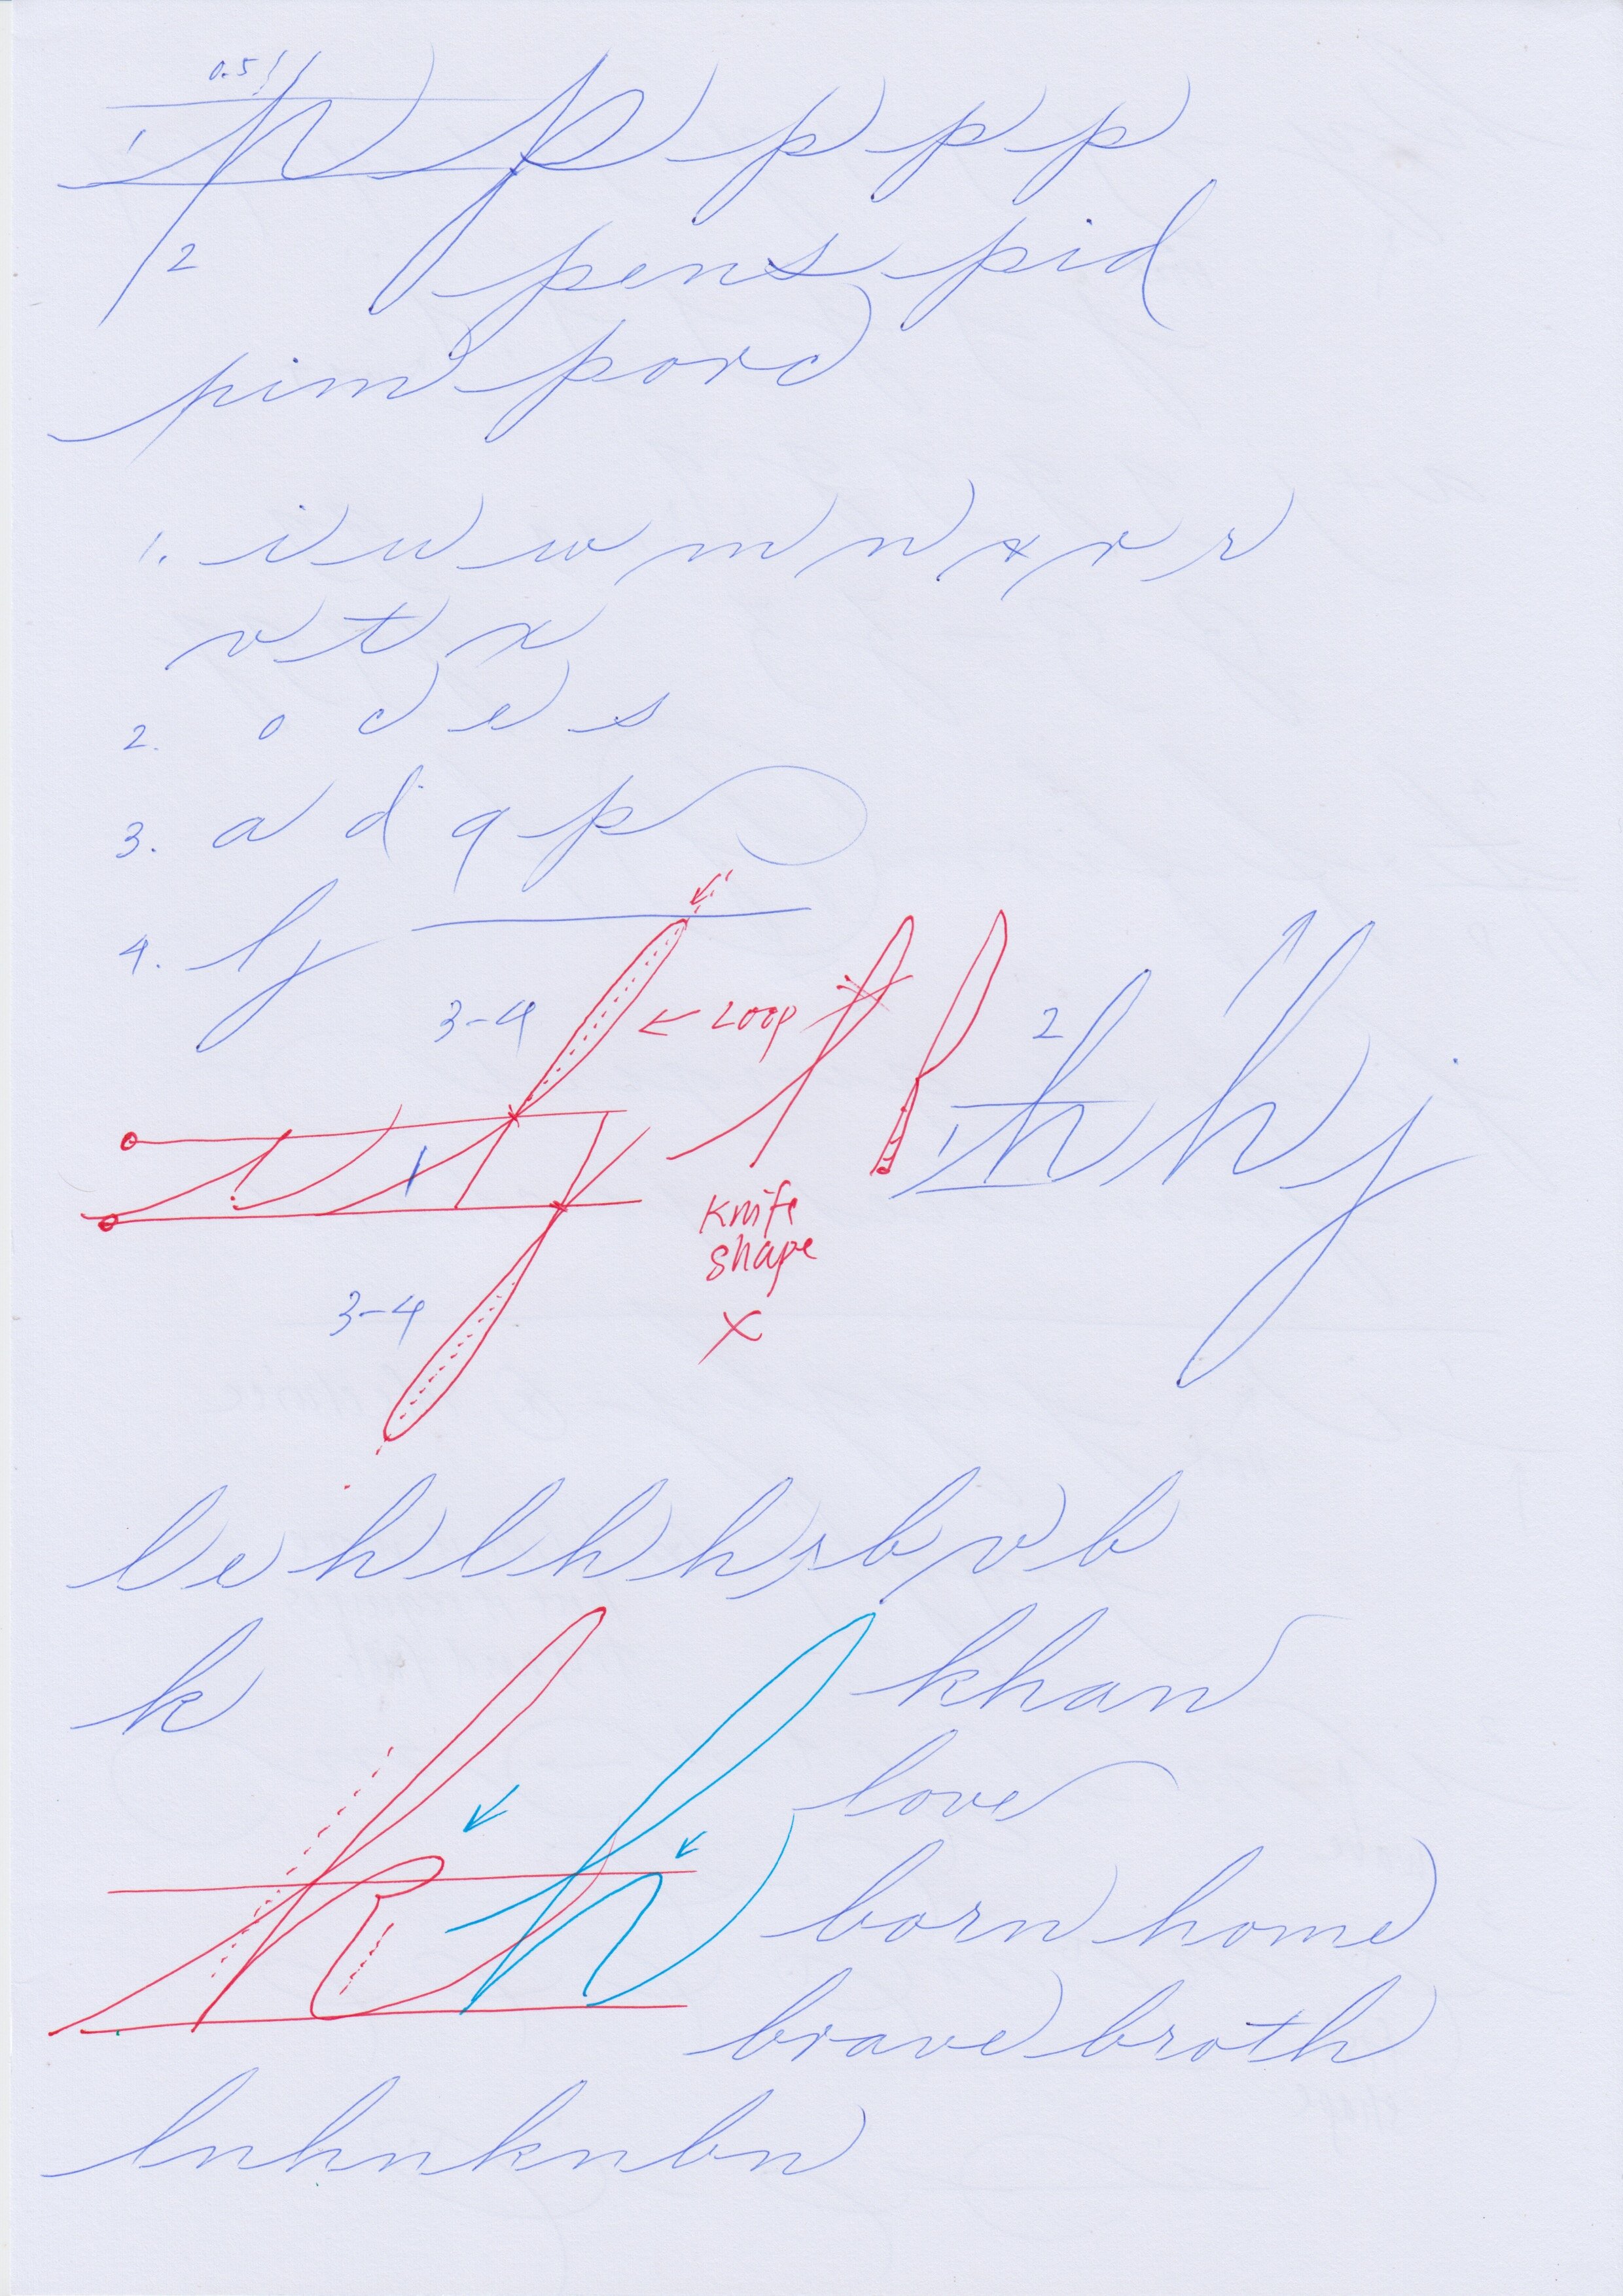 0.5
1 p p p p p
2 pens pid
pim porc
1. i u w m n x r r
v t x
2. o c e s
3. a d q p
4. l j
3-4 ← Loop 2 h h j
1 i l j 1
Knife
shape
3-4 X
l e h l h h s b v b
k k h khan
love
born home
brave broth
lnhnknbn